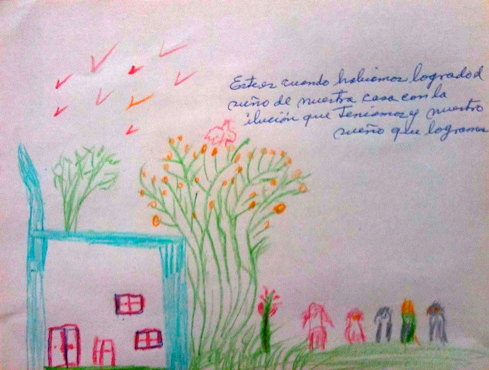 Este es cuando habiamos logrado d
sueño de nuestra casa con la
ilución que teniamos y nuestro
sueño que logramos